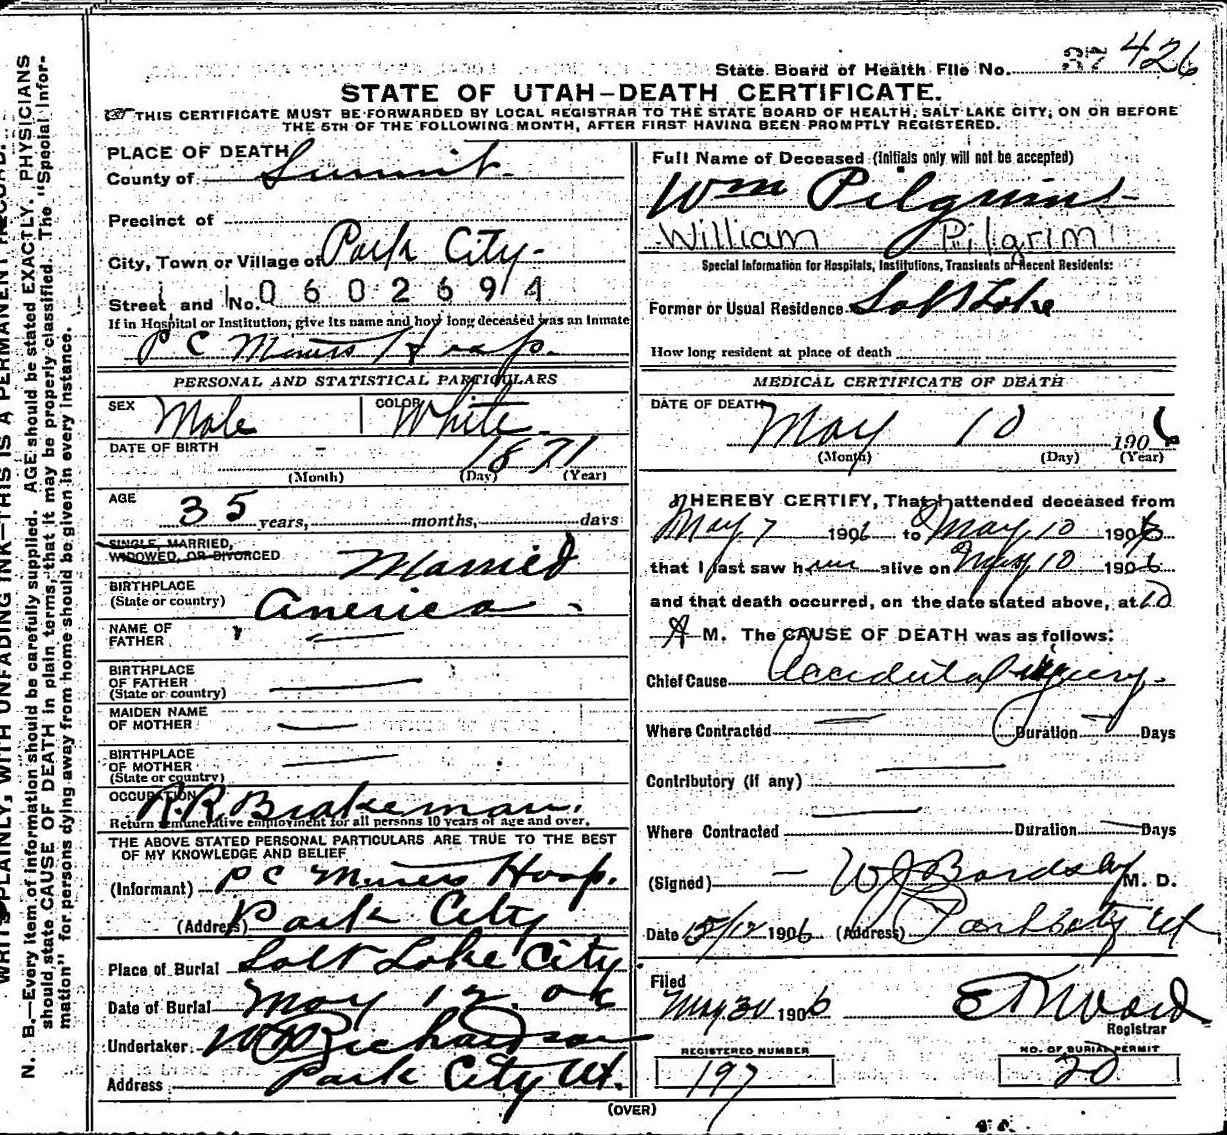 State Board of Health File No. 37 426
STATE OF UTAH—DEATH CERTIFICATE.
THIS CERTIFICATE MUST BE FORWARDED BY LOCAL REGISTRAR TO THE STATE BOARD OF HEALTH, SALT LAKE CITY, ON OR BEFORE
THE 5TH OF THE FOLLOWING MONTH, AFTER FIRST HAVING BEEN PROMPTLY REGISTERED.
PLACE OF DEATH
County of Summit
Precinct of
City, Town or Village of Park City
Street and No. 0602694
If in Hospital or Institution, give its name and how long deceased was an Inmate
P C Miners Hosp.
PERSONAL AND STATISTICAL PARTICULARS
SEX Male COLOR White
DATE OF BIRTH 1871
(Month) (Day) (Year)
AGE
35 years, months, days
SINGLE, MARRIED,
WIDOWED, OR DIVORCED Married
BIRTHPLACE
(State or country) America
NAME OF
FATHER
BIRTHPLACE
OF FATHER
(State or country)
MAIDEN NAME
OF MOTHER
BIRTHPLACE
OF MOTHER
(State or country)
OCCUPATION R.R. Brakeman.
Return remunerative employment for all persons 10 years of age and over.
THE ABOVE STATED PERSONAL PARTICULARS ARE TRUE TO THE BEST
OF MY KNOWLEDGE AND BELIEF
(Informant) P C Miners Hosp.
(Address) Park City
Place of Burial Salt Lake City
Date of Burial May 12. 06
Undertaker Richardson
Address Park City Ut.
Full Name of Deceased (Initials only will not be accepted)
Wm Pilgrim
William Pilgrim
Special Information for Hospitals, Institutions, Transients or Recent Residents:
Former or Usual Residence Salt Lake
How long resident at place of death
MEDICAL CERTIFICATE OF DEATH
DATE OF DEATH
May 10 1906
(Month) (Day) (Year)
I HEREBY CERTIFY, That I attended deceased from
May 7 1906 to May 10 1906
that I last saw him alive on May 10 1906
and that death occurred, on the date stated above, at 10
A M. The CAUSE OF DEATH was as follows:
Chief Cause Accidental injury.
Where Contracted Duration Days
Contributory (if any)
Where Contracted Duration Days
(Signed) W J Bardsley M. D.
Date 5/12 1906 (Address) Park City Ut
Filed
May 30 1906 Ward
Registrar
REGISTERED NUMBER
197
NO. OF BURIAL PERMIT
20
(OVER)
WRITE PLAINLY, WITH UNFADING INK—THIS IS A PERMANENT RECORD.
N. B.—Every item of information should be carefully supplied. AGE should be stated EXACTLY. PHYSICIANS
should state CAUSE OF DEATH in plain terms, that it may be properly classified. The "Special Infor-
mation" for persons dying away from home should be given in every instance.